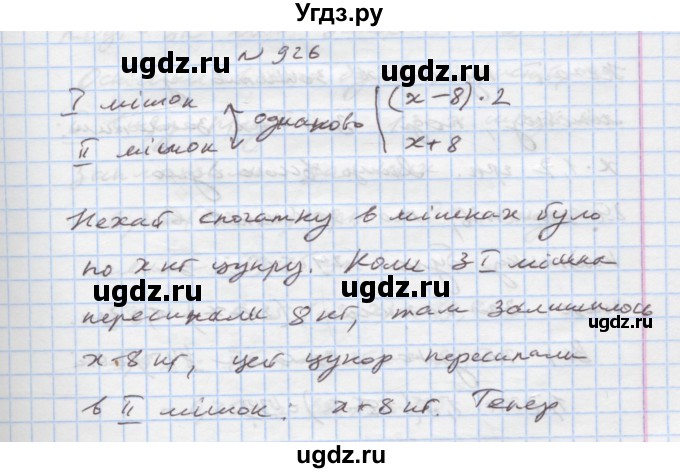 Угдз.ру
№ 926
I мішок
II мішок } однаково | (x-8)·2
x+8
Нехай спочатку в мішках було
по x кг цукру. Коли з I мішка
пересипали 8 кг, там залишилось
x-8 кг, цей цукор пересипали
в II мішок: x+8 кг. Тепер
ugdz.ru
ugdz.ru
ugdz.ru
ugdz.ru
ugdz.ru
ugdz.ru
ugdz.ru
ugdz.ru
ugdz.ru